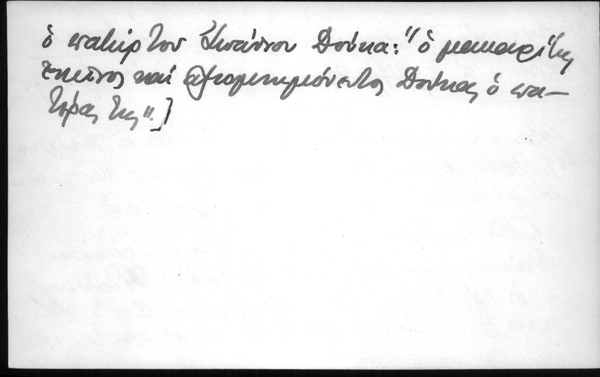 ὁ πατὴρ τοῦ Ἰωάννου Δούκα: "ὁ μακαρίτης
ἐκεῖνος καὶ ἀξιομνημόνευτος Δούκας ὁ πα-
τήρ της".]